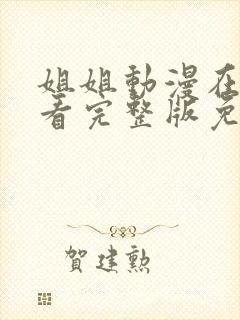 姐姐動漫在
看完整版免
賀建勲